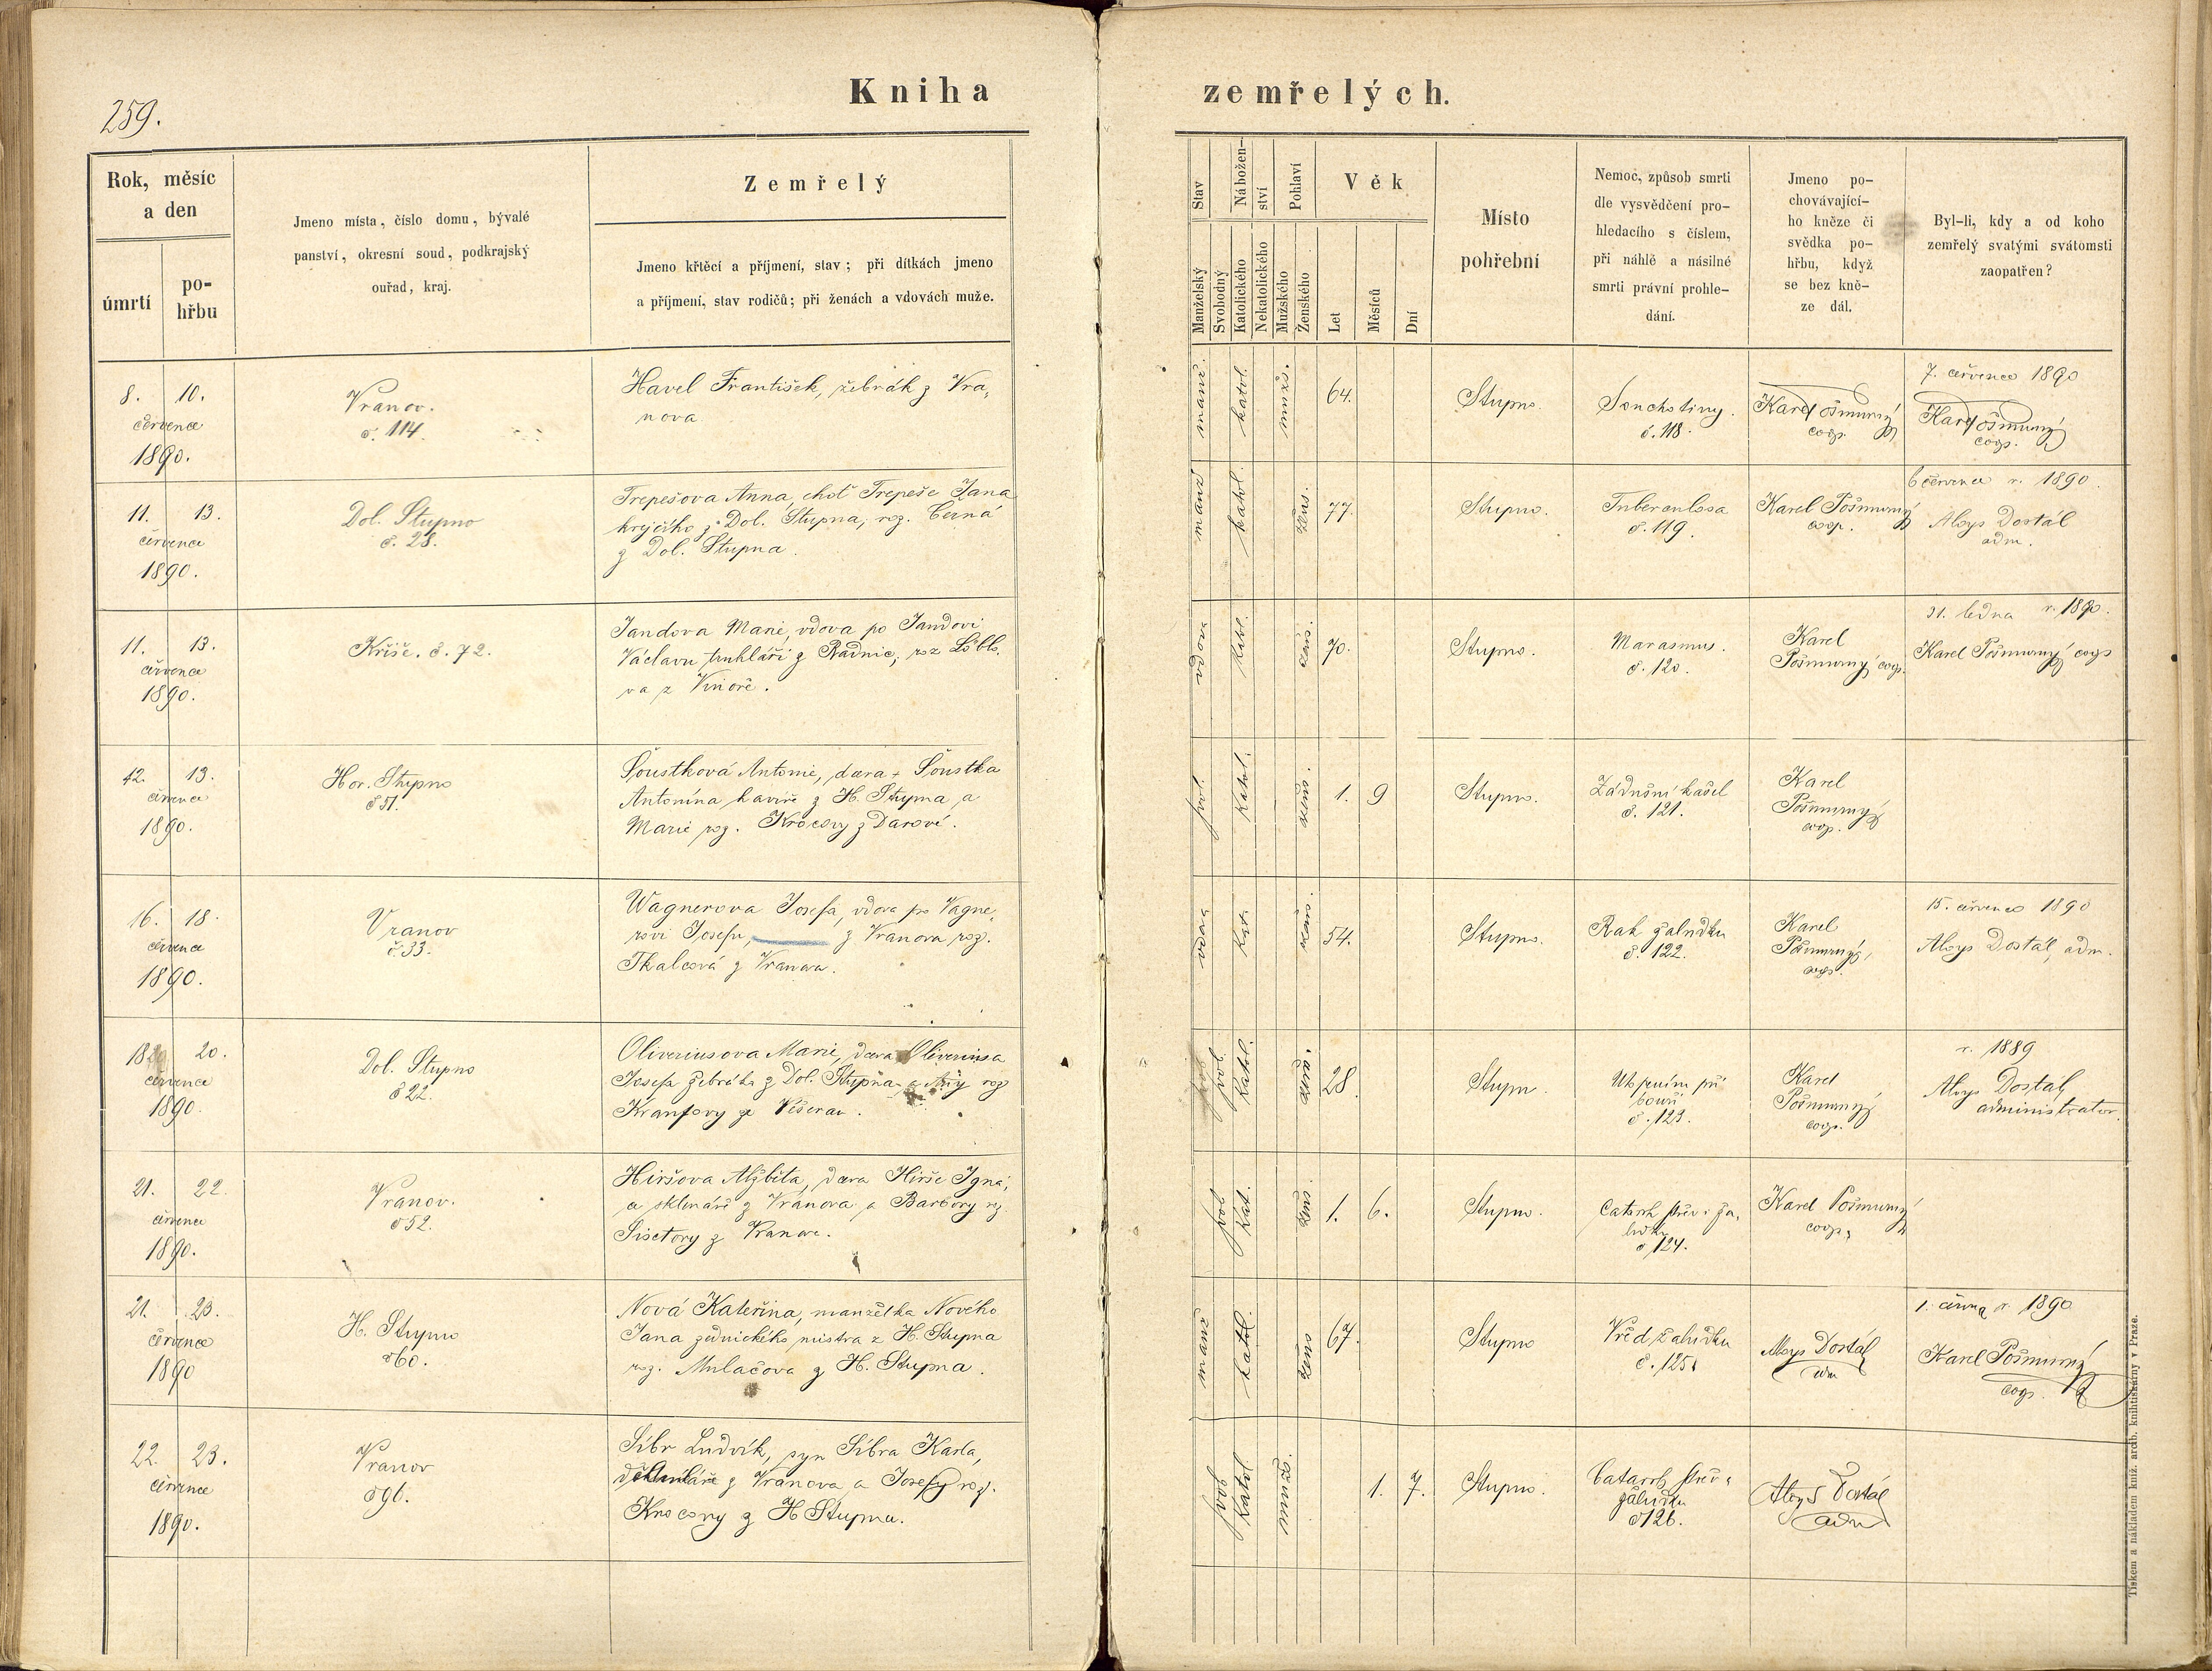 Kniha zemřelých.
259.
Rok, měsíc
a den
úmrtí
po-
hřbu
Jmeno místa, číslo domu, bývalé
panství, okresní soud, podkrajský
ouřad, kraj.
Zemřelý
Jmeno křtěcí a příjmení, stav; při dítkách jmeno
a příjmení, stav rodičů; při ženách a vdovách muže.
Stav
Manželský
Svobodný
Nábožen-
ství
Katolického
Nekatolického
Pohlaví
Mužského
Ženského
Věk
Let
Měsíců
Dní
Místo
pohřební
Nemoc, způsob smrti
dle vysvědčení pro-
hledacího s číslem,
při náhlě a násilné
smrti právní prohle-
dání.
Jmeno po-
chovávající-
ho kněze či
svědka po-
hřbu, když
se bez kně-
ze dál.
Byl-li, kdy a od koho
zemřelý svatými svátomsti
zaopatřen?
8. 10.
července
1890.
Vranov.
č. 114.
Havel František, žebrák z Vra,
nova
manž.
katol.
mužs.
64.
Stupno.
Souchotiny.
č. 118.
Karel Pošmurný
coop.
7. července 1890
Karel Pošmurný
coop.
11. 13.
července
1890.
Dol. Stupno
č. 28.
Trepešova Anna, choť Trepeše Jana
krejčího z Dol. Stupna, roz. Černá
z Dol. Stupna.
manž
katol.
žens.
77.
Stupno.
Tuberculosa
č. 119.
Karel Pošmurný
coop.
6 července r. 1890.
Aloys Dostál
adm.
11. 13.
července
1890.
Kříše. č. 72.
Jandova Marie, vdova po Jandovi
Václavu truhláři z Radnic, roz
va z
vdova
katol.
žens.
70.
Stupno.
Marasmus.
č. 120.
Karel
Pošmurný coop.
31. ledna r. 1890.
Karel Pošmurný coop
12. 13.
července
1890.
Hor. Stupno
č 51.
Šoustková Antonie, dcera † Šoustka
Antonína havíře z H. Stupna a
Marie roz. Krocovy z Darové.
svob.
katol.
žens.
1. 9
Stupno.
Zádušní kašel
č. 121.
Karel
Pošmurný
coop.
16. 18.
července
1890.
Vranov
č. 33.
Wagnerova Josefa, vdova po Vagne,
rovi Josefu, z Vranova roz.
Tkalcová z Vranova.
vdova
kat.
žens.
54.
Stupno.
Rak žaludku
č. 122.
Karel
Pošmurný,
coop.
15. července 1890
Aloys Dostál, adm.
18 20.
července
1890.
Dol. Stupno
č 22.
Oliveriusova Marie, dcera Oliveriusa
Josefa žebráka z Dol. Stupna a Anny roz
Kraufovy ze Všerau.
svob.
katol.
žens.
28.
Stupno
při
bouři
č. 123.
Karel
Pošmurný
coop.
r. 1889
Aloys Dostál,
administrator.
21. 22.
července
1890.
Vranov.
č 52.
Hiršova Alžběta, dcera Hirše Igná,
a sklenáře z Vranova a Barbory roz.
z Vranova.
svob
kat.
žens.
1. 6.
Stupno.
Catarrh střev i ža,
ludku
č 124.
Karel Pošmurný
coop.
21. 23.
července
1890
H. Stupno
č 60.
Nová Kateřina, manželka Nového
Jana zednického mistra z H. Stupna
roz. Mulačova z H. Stupna.
manž
katol.
žens
67.
Stupno
Vřed žaludku
č. 125.
Aloys Dostál,
adm
1. června r. 1890
Karel Pošmurný
coop.
22. 23.
července
1890.
Vranov
č 96.
Síbr Ludvík, syn Síbra Karla,
z Vranova a Josefy roz.
Krocovy z H Stupna.
svob
katol.
mužs.
1. 7.
Stupno.
Catarrh střev i
žaludku
č 126.
Aloys Dostál
adm
Tiskem a nákladem kníž. arcib. knihtiskárny v Praze.